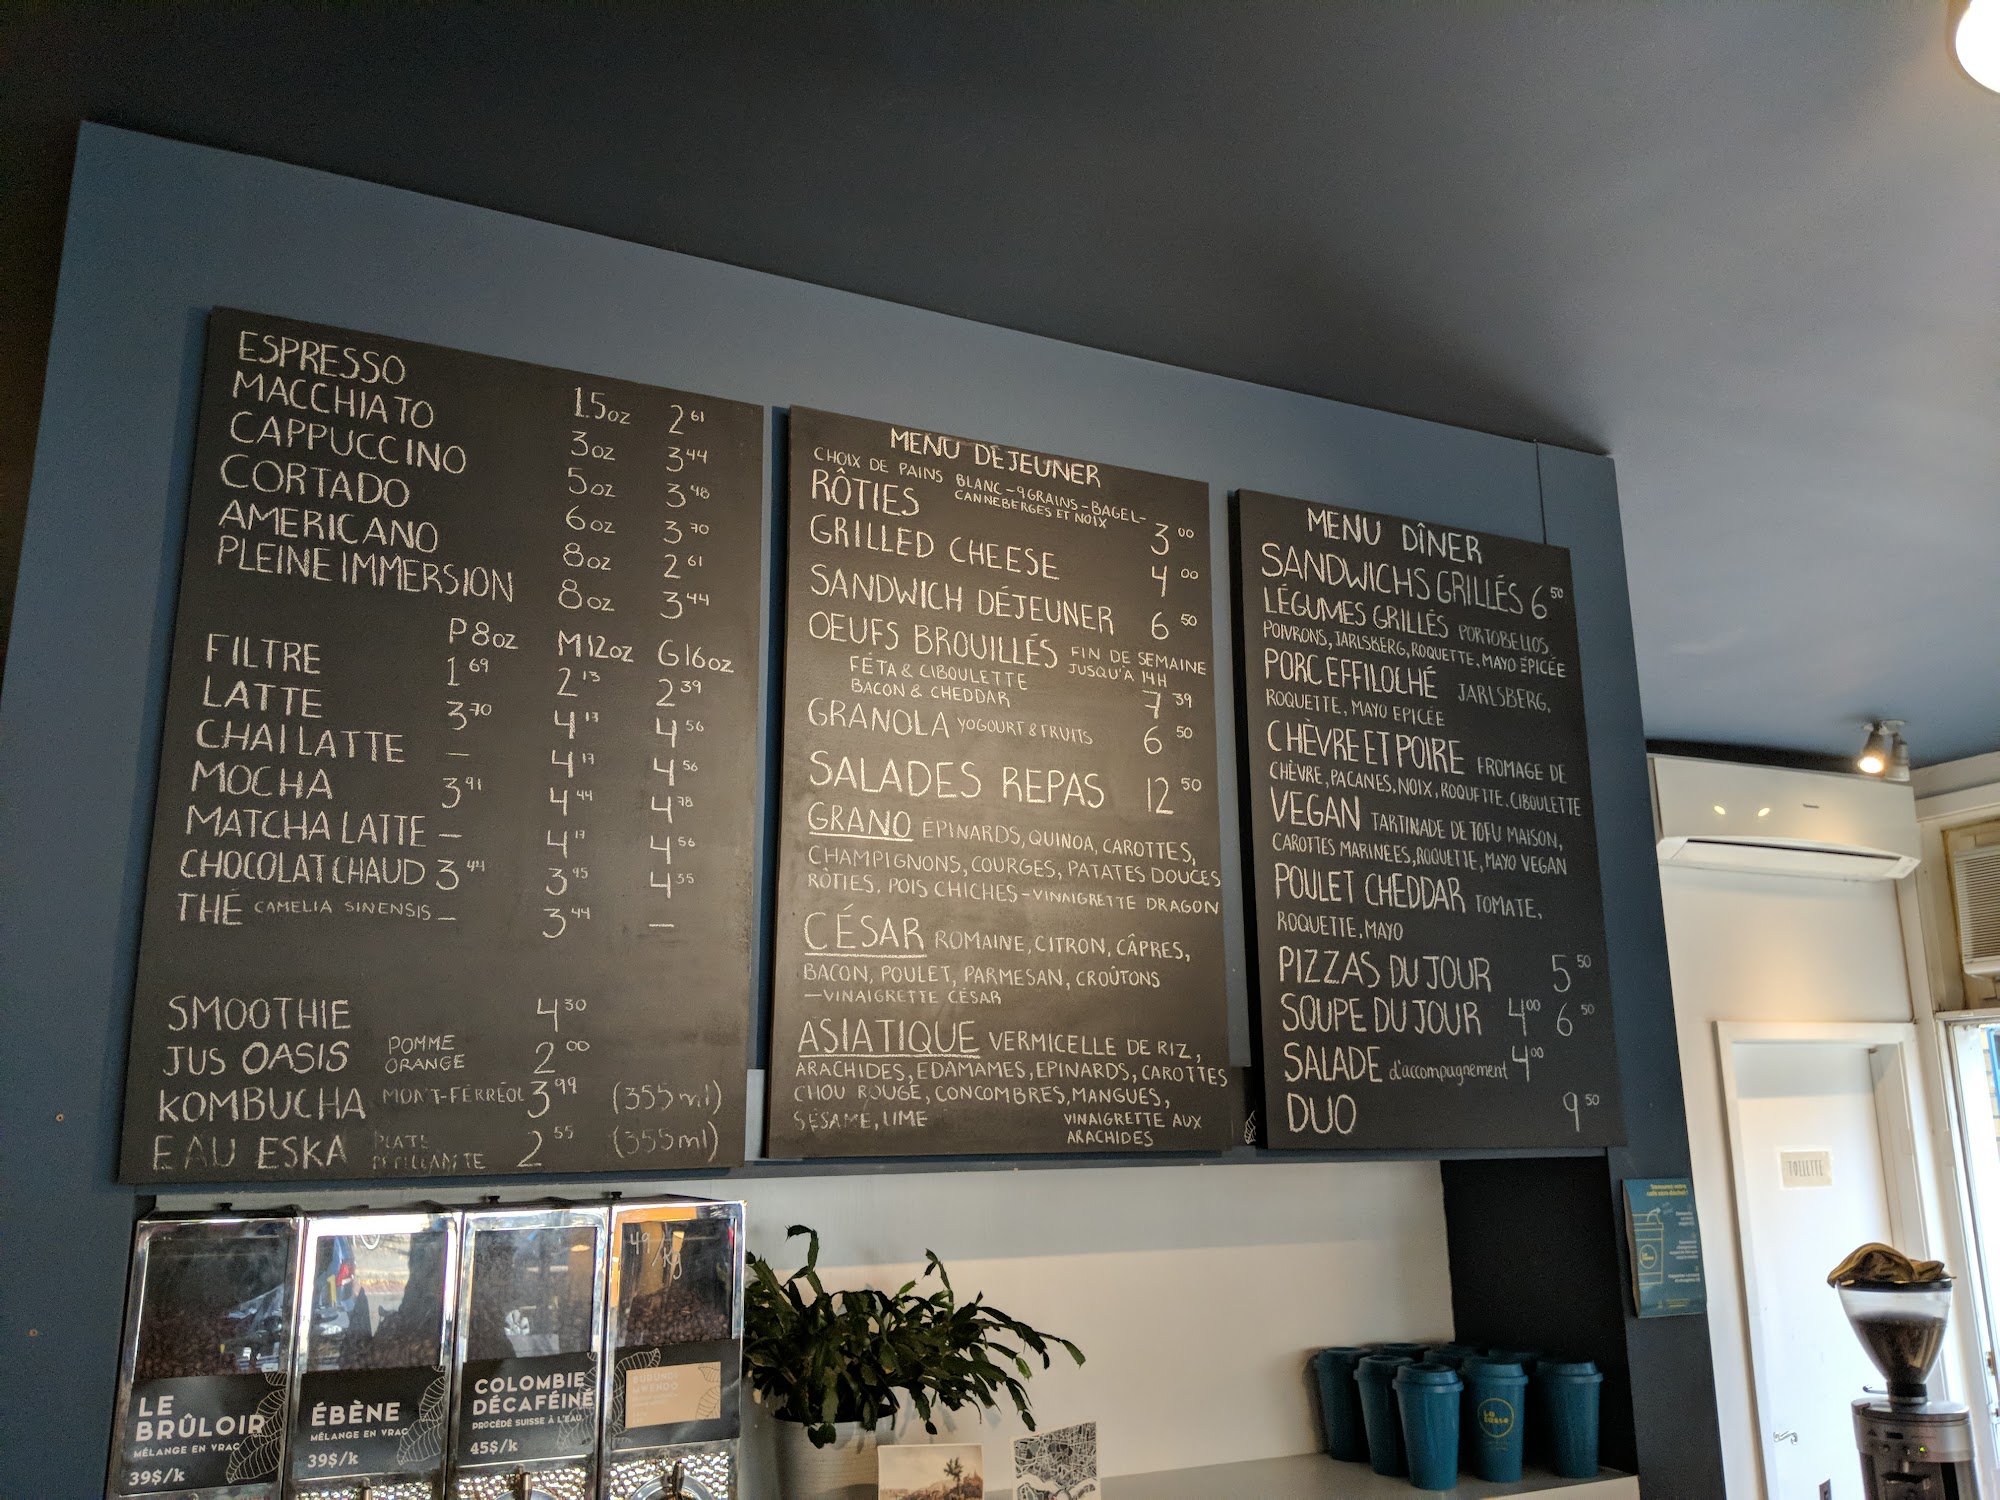 ESPRESSO 1.5oz 2 61
MACCHIATO 3oz 3 44
CAPPUCCINO 5oz 3 48
CORTADO 6oz 3 70
AMERICANO 8oz 2 61
PLEINE IMMERSION 8oz 3 44
P 8oz M 12oz G 16oz
FILTRE 1 69 2 13 2 39
LATTE 3 70 4 13 4 56
CHAI LATTE — 4 17 4 56
MOCHA 3 91 4 44 4 78
MATCHA LATTE — 4 17 4 56
CHOCOLAT CHAUD 3 44 3 95 4 35
THÉ CAMELIA SINENSIS — 3 44 —
SMOOTHIE 4 30
JUS OASIS POMME
ORANGE 2 00
KOMBUCHA MONT-FÉRRÉOL 3 99 (355ml)
EAU ESKA PLATE
PÉTILLANTE 2 55 (355ml)
MENU DÉJEUNER
CHOIX DE PAINS BLANC-9GRAINS-BAGEL-
CANNEBERGES ET NOIX
RÔTIES 3 00
GRILLED CHEESE 4 00
SANDWICH DÉJEUNER 6 50
OEUFS BROUILLÉS FIN DE SEMAINE
JUSQU'À 14H
FÉTA & CIBOULETTE
BACON & CHEDDAR 7 39
GRANOLA YOGOURT & FRUITS 6 50
SALADES REPAS 12 50
GRANO ÉPINARDS, QUINOA, CAROTTES,
CHAMPIGNONS, COURGES, PATATES DOUCES
RÔTIES, POIS CHICHES-VINAIGRETTE DRAGON
CÉSAR ROMAINE, CITRON, CÂPRES,
BACON, POULET, PARMESAN, CROÛTONS
—VINAIGRETTE CÉSAR
ASIATIQUE VERMICELLE DE RIZ,
ARACHIDES, EDAMAMES, EPINARDS, CAROTTES
CHOU ROUGE, CONCOMBRES, MANGUES,
SÉSAME, LIME VINAIGRETTE AUX
ARACHIDES
MENU DÎNER
SANDWICHS GRILLÉS 6 50
LÉGUMES GRILLÉS PORTOBELLOS,
POIVRONS, JARLSBERG, ROQUETTE, MAYO ÉPICÉE
PORC EFFILOCHÉ JARLSBERG,
ROQUETTE, MAYO EPICÉE
CHÈVRE ET POIRE FROMAGE DE
CHÈVRE, PACANES, NOIX, ROQUETTE, CIBOULETTE
VEGAN TARTINADE DE TOFU MAISON,
CAROTTES MARINÉES, ROQUETTE, MAYO VEGAN
POULET CHEDDAR TOMATE,
ROQUETTE, MAYO
PIZZAS DU JOUR 5 50
SOUPE DU JOUR 4 00 6 50
SALADE d'accompagnement 4 00
DUO 9 50
TOILETTE
LE
BRÛLOIR
MÉLANGE EN VRAC
39$/k
ÉBÈNE
MÉLANGE EN VRAC
39$/k
COLOMBIE
DÉCAFÉINÉ
PROCÉDÉ SUISSE À L'EAU
45$/k
49/kg
BURUNDI
MWENDO
La
tasse